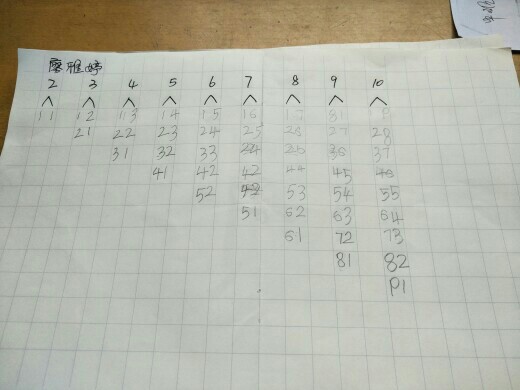 廖雅婷
2 3 4 5 6 7 8 9 10
11 12 13 14 15 16 17 81
21 22 23 24 25 26 27 28
31 32 33 34 36 37
41 42 42 44 45 46
52 53 54 55
51 62 63 64
61 72 73
81 82
91